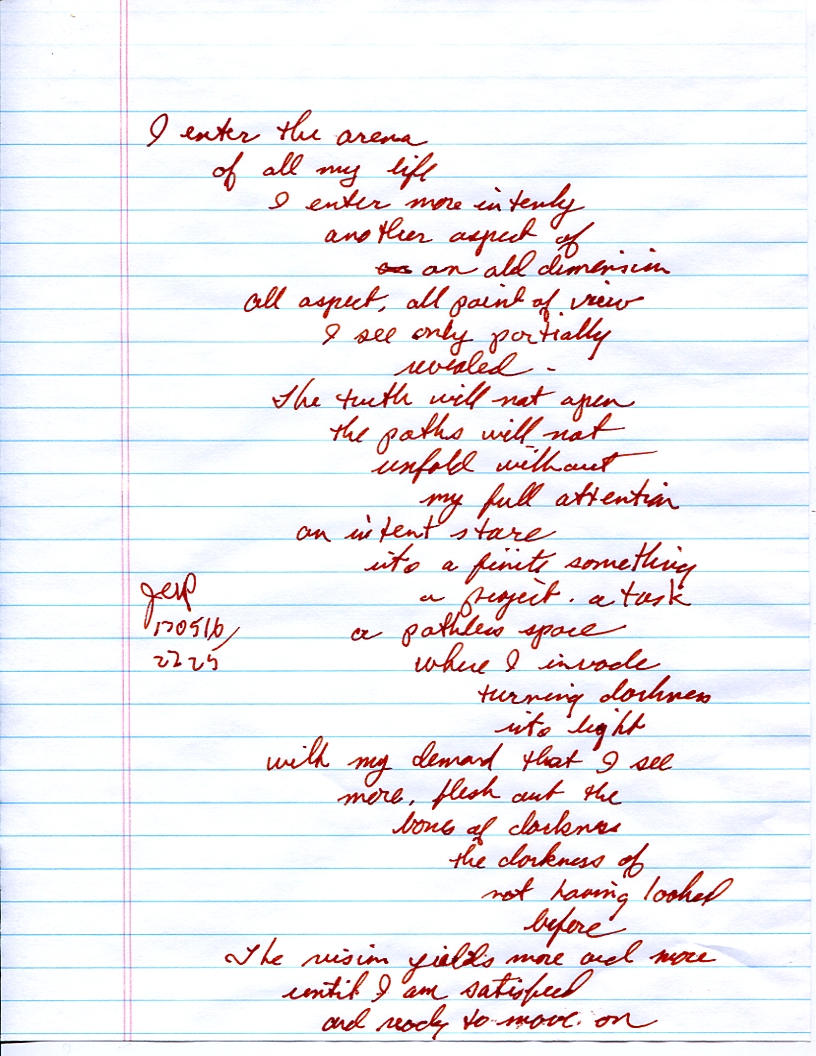 I enter the arena
of all my life
I enter more intenly
another aspect of
an old dimension
all aspect, all point of view
I see only partially
revealed -
The truth will not open
the paths will not
unfold without
my full attention
an intent stare
into a finite something
a project. a task
a pathless space
where I invade
turning darkness
into light
with my demand that I see
more, flesh out the
bones of darkness
the darkness of
not having looked
before
The vision yields more and more
until I am satisfied
and ready to move on
170516
2225